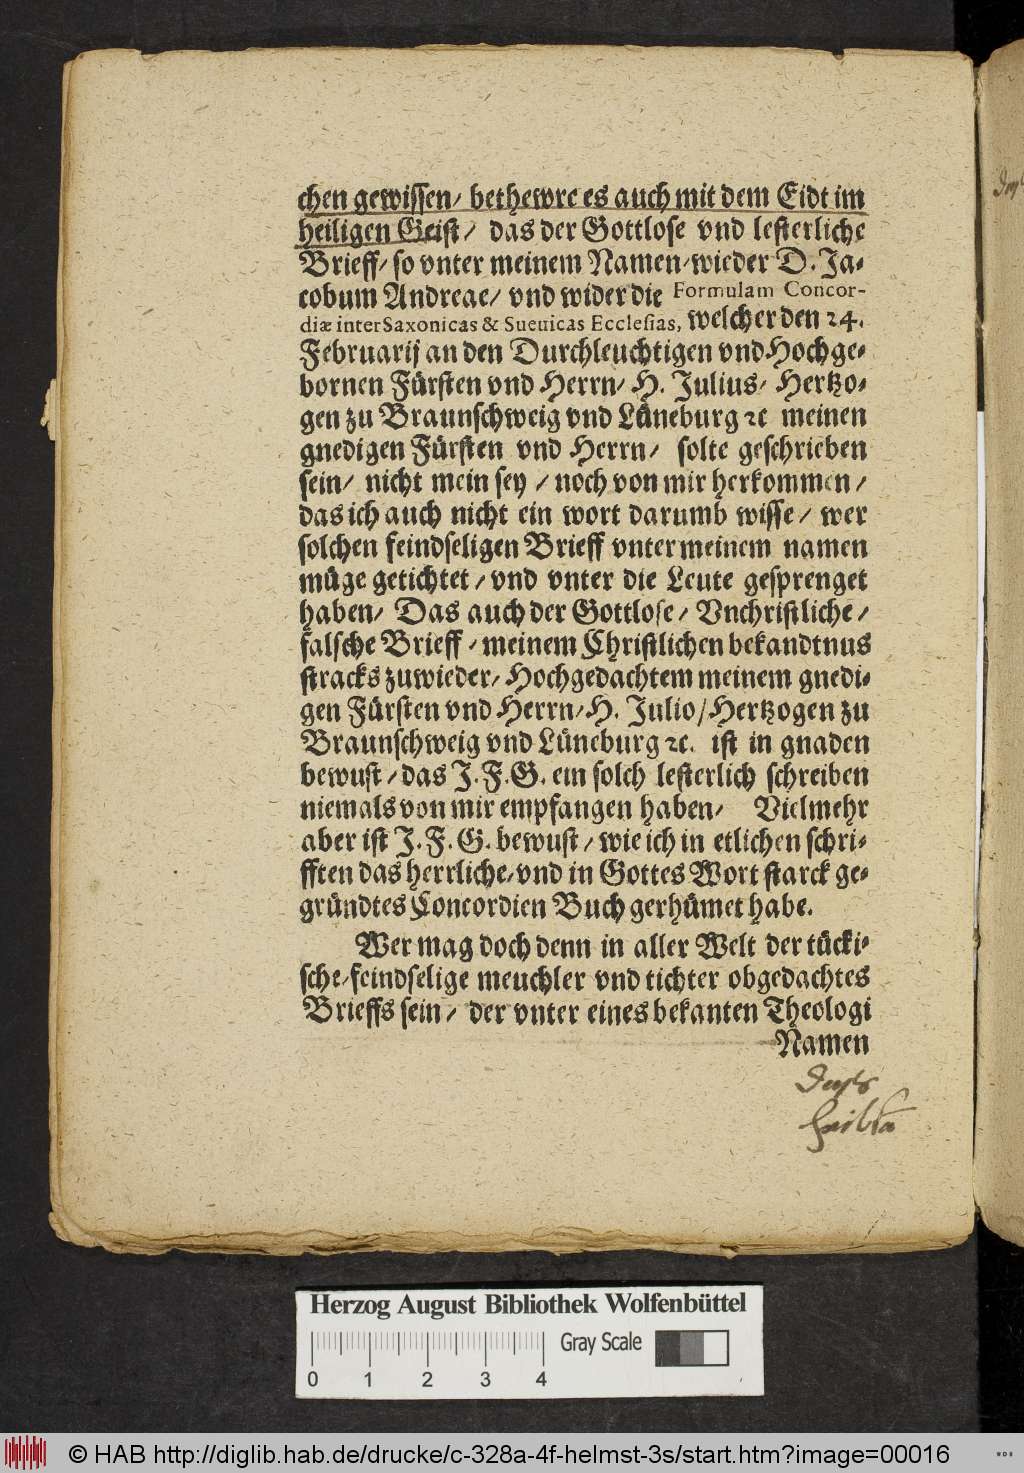 chen gewissen/ bethewre es auch mit dem Eidt im
heiligen Geist/ das der Gottlose vnd lesterliche
Brieff/ so vnter meinem Namen/ wieder D. Ja-
cobum Andreae/ vnd wider die Formulam Concor-
diæ inter Saxonicas & Sueuicas Ecclesias, welcher den 24.
Februarij an den Durchleuchtigen vnd Hochge-
bornen Fürsten vnd Herrn/ H. Julius/ Hertzo-
gen zu Braunschweig vnd Lüneburg ꝛc meinen
gnedigen Fürsten vnd Herrn/ solte geschrieben
sein/ nicht mein sey / noch von mir herkommen /
das ich auch nicht ein wort darumb wisse / wer
solchen feindseligen Brieff vnter meinem namen
müge getichtet / vnd vnter die Leute gesprenget
haben/ Das auch der Gottlose / Vnchristliche /
falsche Brieff / meinem Christlichen bekandtnus
stracks zuwieder/ Hochgedachtem meinem gnedi-
gen Fürsten vnd Herrn/ H. Julio/ Hertzogen zu
Braunschweig vnd Lüneburg ꝛc. ist in gnaden
bewust / das J. F. G. ein solch lesterlich schreiben
niemals von mir empfangen haben/ Vielmehr
aber ist J. F. G. bewust / wie ich in etlichen schri-
fften das herrliche/ vnd in Gottes Wort starck ge-
gründtes Concordien Buch gerhümet habe.
Wer mag doch denn in aller Welt der tücki-
sche/ feindselige meuchler vnd tichter obgedachtes
Brieffs sein/ der vnter eines bekanten Theologi
Namen
Herzog August Bibliothek Wolfenbüttel
Gray Scale
0 1 2 3 4
© HAB http://diglib.hab.de/drucke/c-328a-4f-helmst-3s/start.htm?image=00016